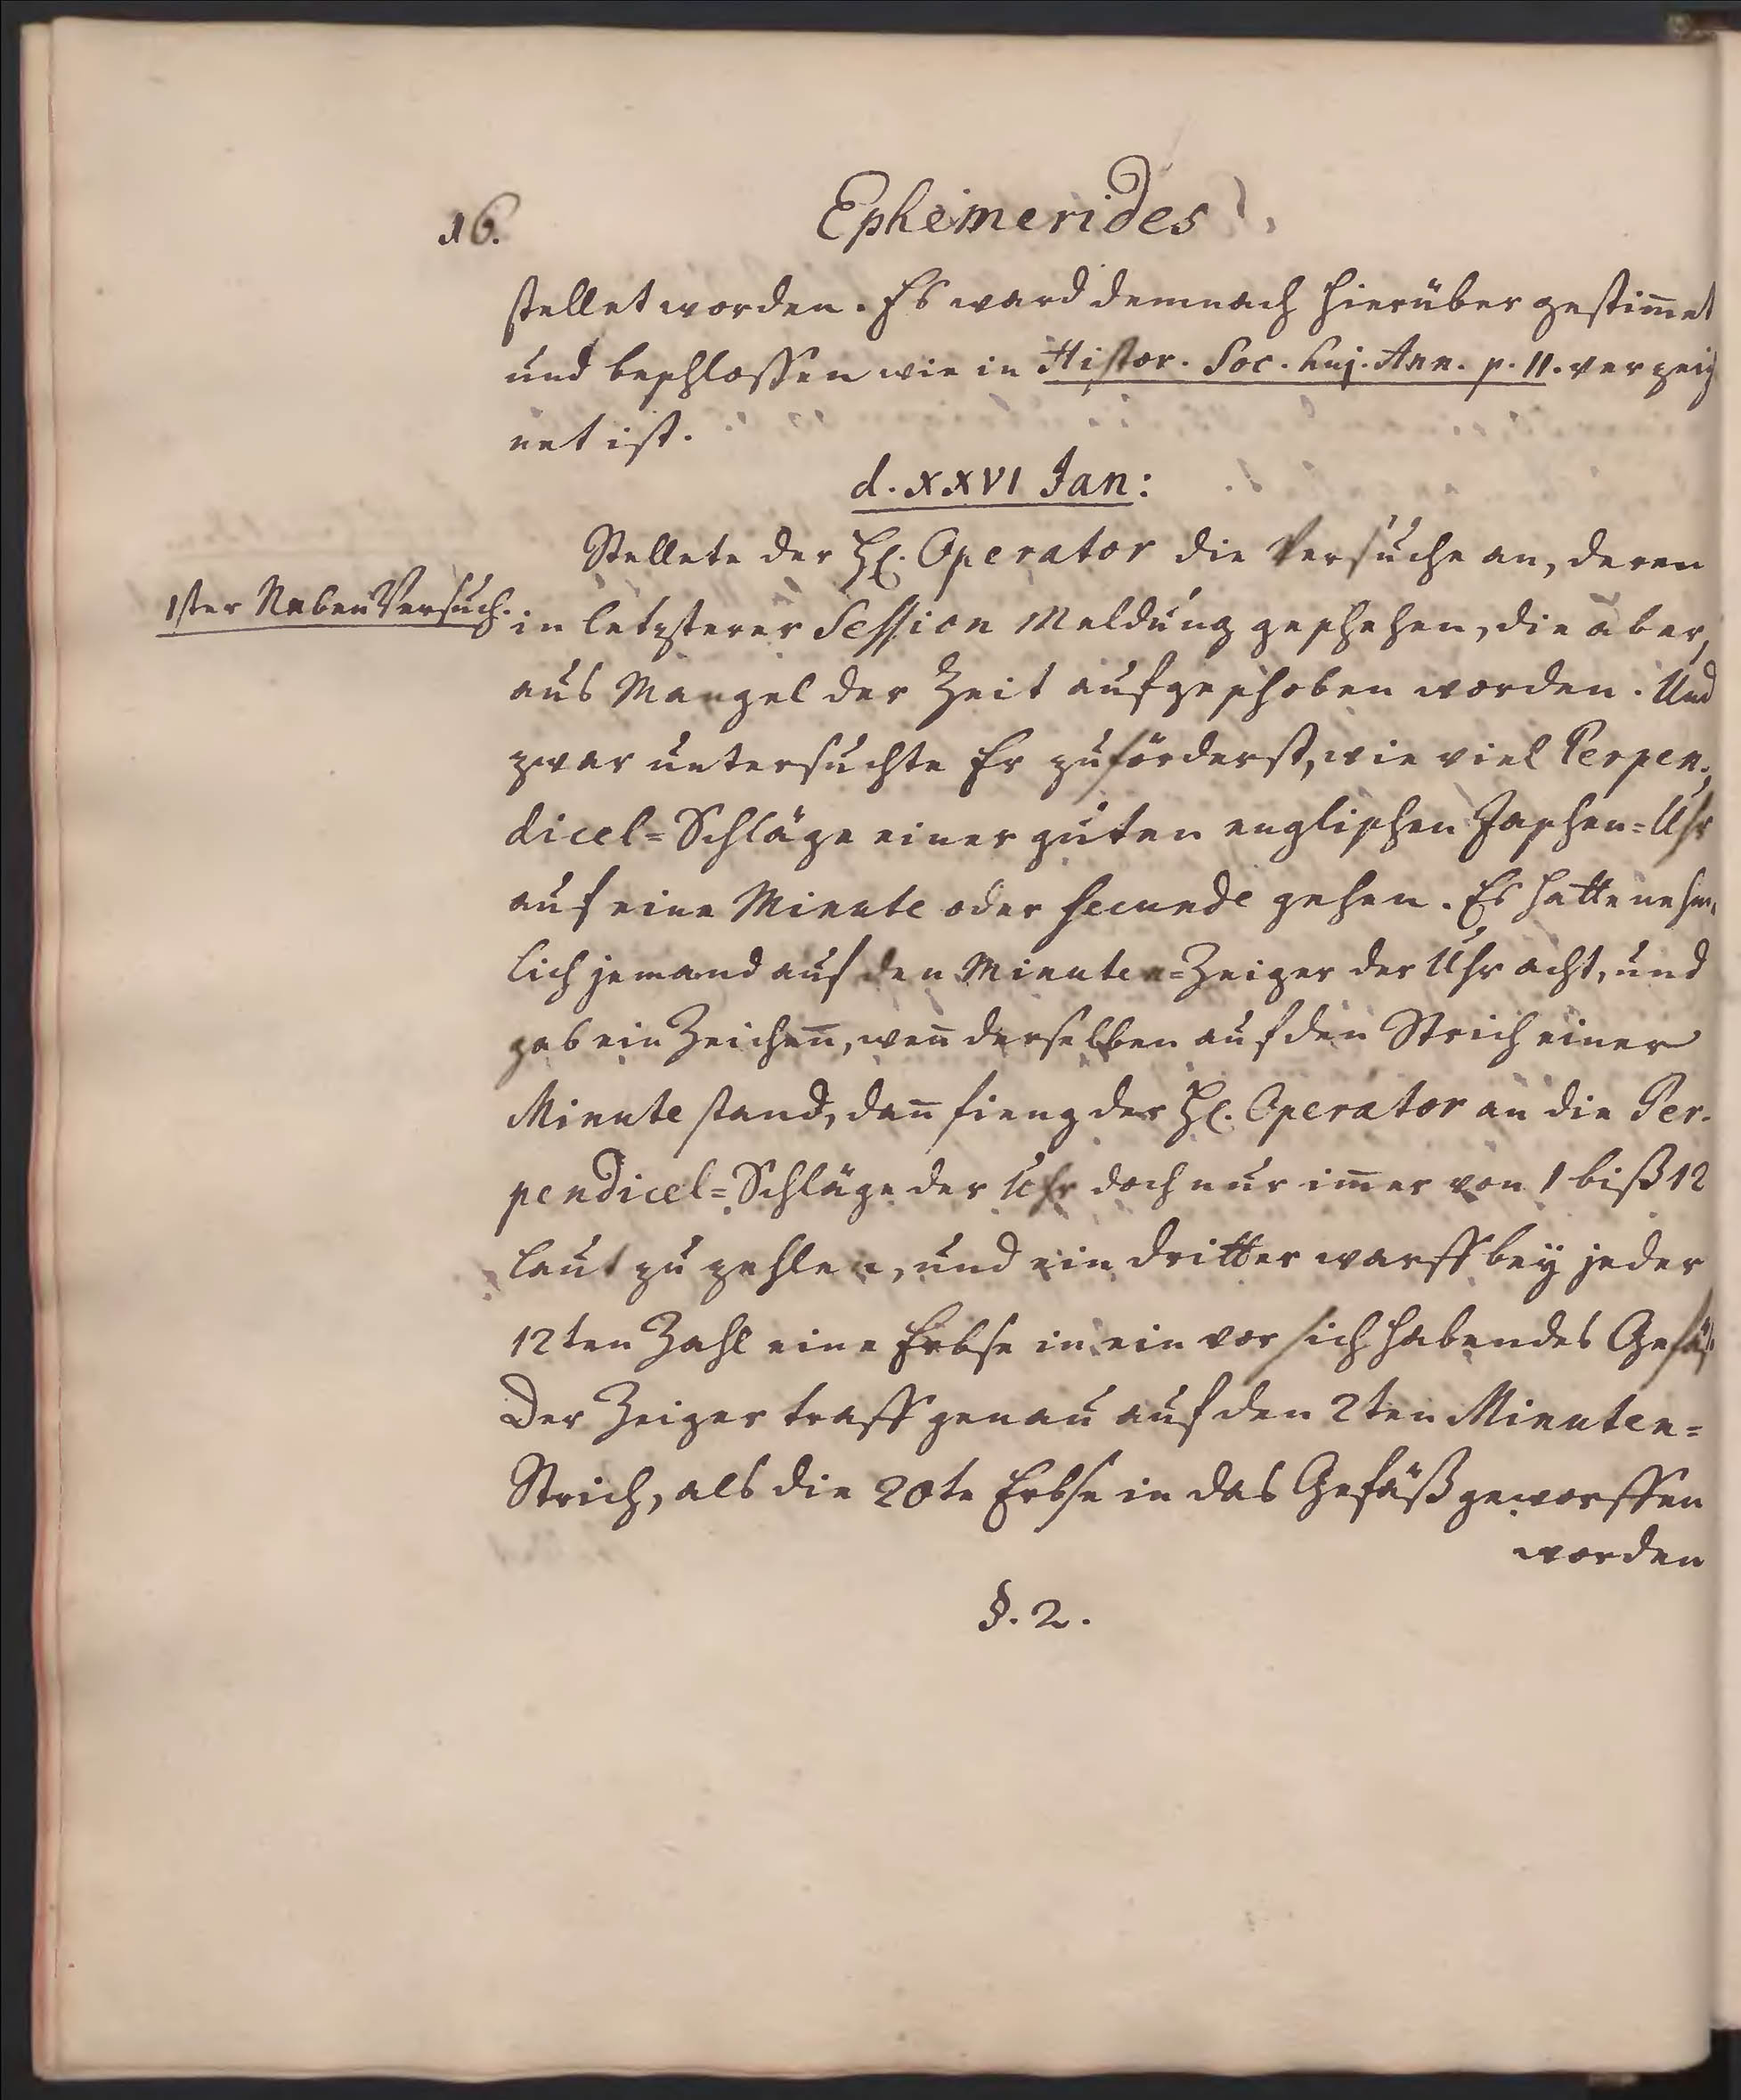 16. Ephemerides
stellet worden. Es ward demnach hierüber gestim̅et
und beschlossen wie in Histor. Soc. huj. Ann. p. 11. verzeich
net ist.
d. XXVI Jan:
Stellete der H. Operator die Versuche an, deren
1ster Neben Versuch.
in letzterer Session Meldung geschehen, die aber,
aus Mangel der Zeit aufgeschoben worden. Und
zwar untersuchte Er zuförderst, wie viel Perpen,
dicel=Schläge einer guten englischen Taschen=Uhr
auf eine Minute oder Secunde gehen. Es hatte nehm,
lich jemand auf den Minuten=Zeiger der Uhr acht, und
gab ein Zeichen̅, wen̅ derselben auf den Strich einer
Minute stand, dan̅ fieng der H. Operator an die Per-
pendicel=Schläge der Uhr doch nur im̅er von 1 biß 12
laut zu zehlen, und ein dritter warff bey jeder
12ten Zahl eine Erbse in ein vor sich habendes Gefäß
Der Zeiger traff genau auf den 2ten Minuten=
Strich, als die 20te Erbse in das Gefäß geworffen
worden
§. 2.